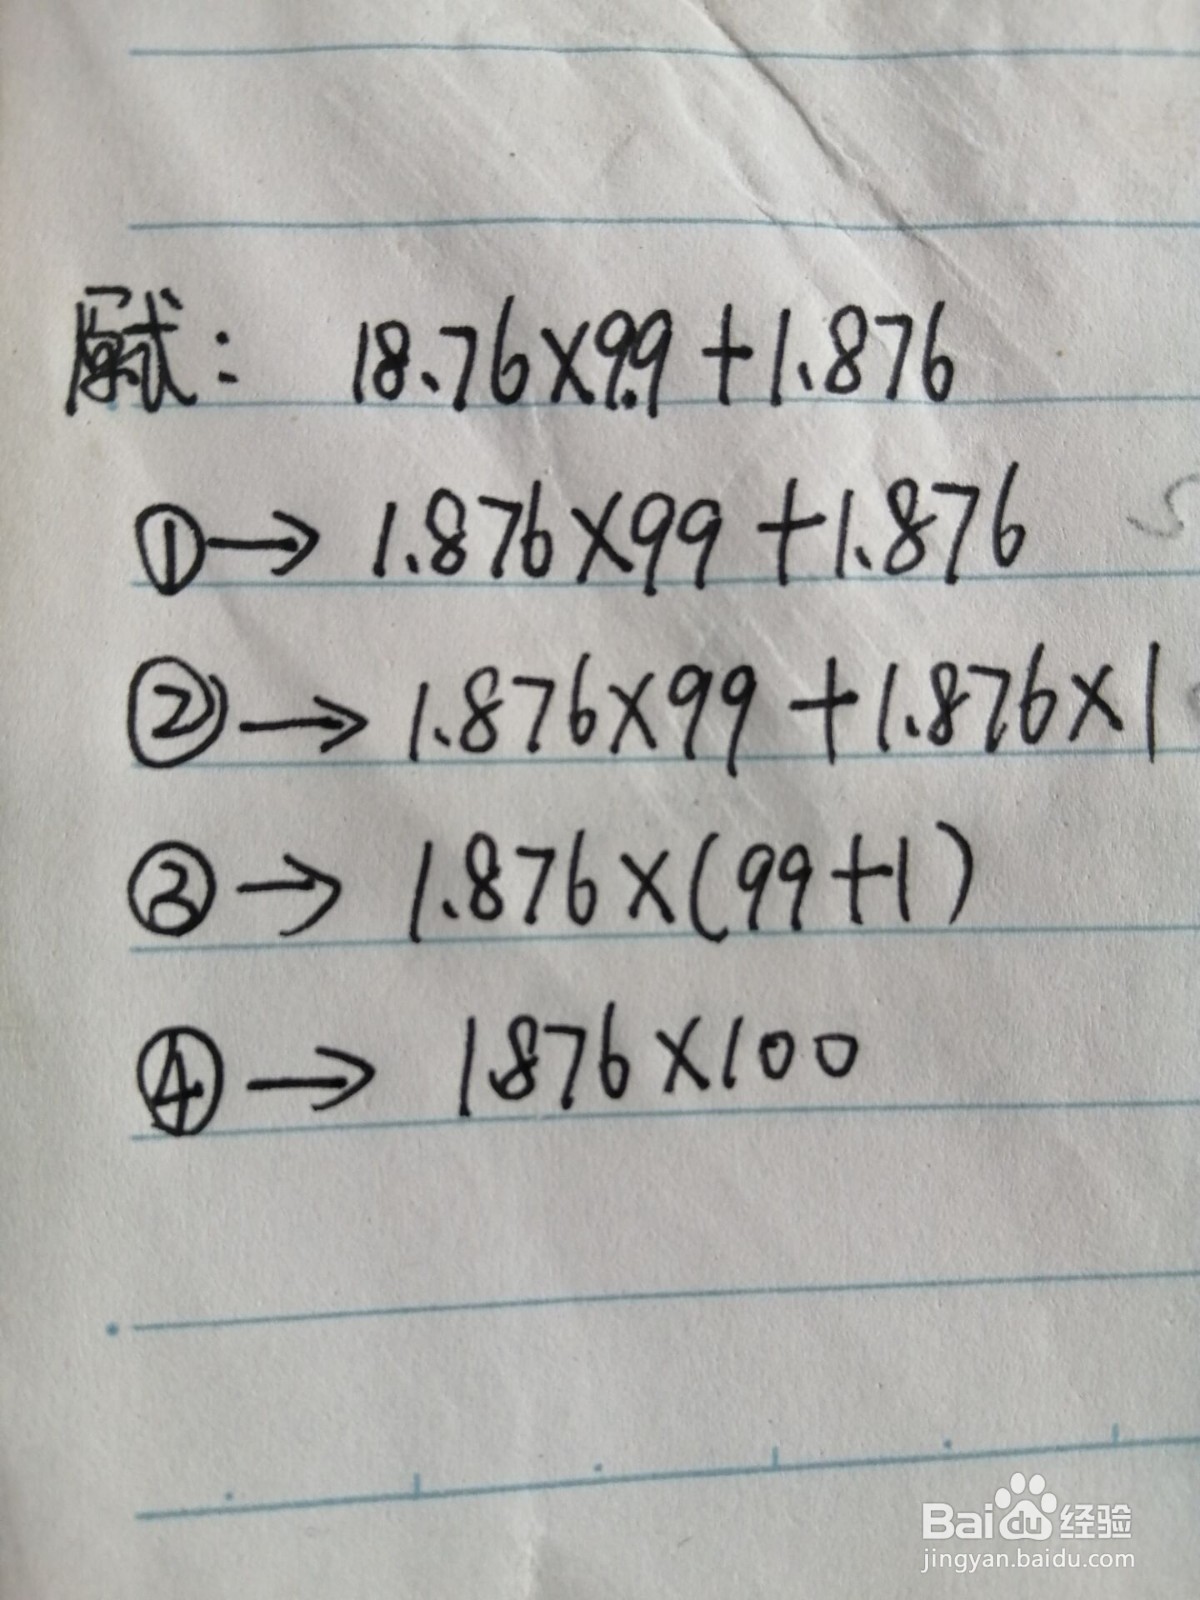 原式： 18.76×9.9+1.876
①→ 1.876×99+1.876
②→ 1.876×99+1.876×1
③→ 1.876×(99+1)
④→ 1.876×100
Baidu经验
jingyan.baidu.com